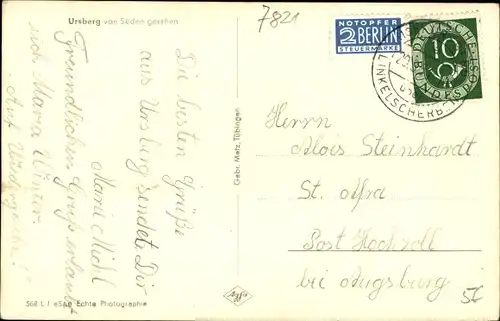 Ursberg von Süden gesehen
7821
NOTOPFER
2 BERLIN
STEUERMARKE
DEUTSCHE
BUNDESPOST
10
LINKELSCHERB
Die besten Grüße
aus Ursberg sendet Dir
Maria Michl
Freundlichen Gruß erlaubt
sich Maria Winter.
"Auf Wiedersehn!"
Gebr. Metz, Tübingen
Herrn
Alois Steinhardt
St. Afra
Post Hochzoll
bei Augsburg
Agfa
568 L I e560 Echte Photographie